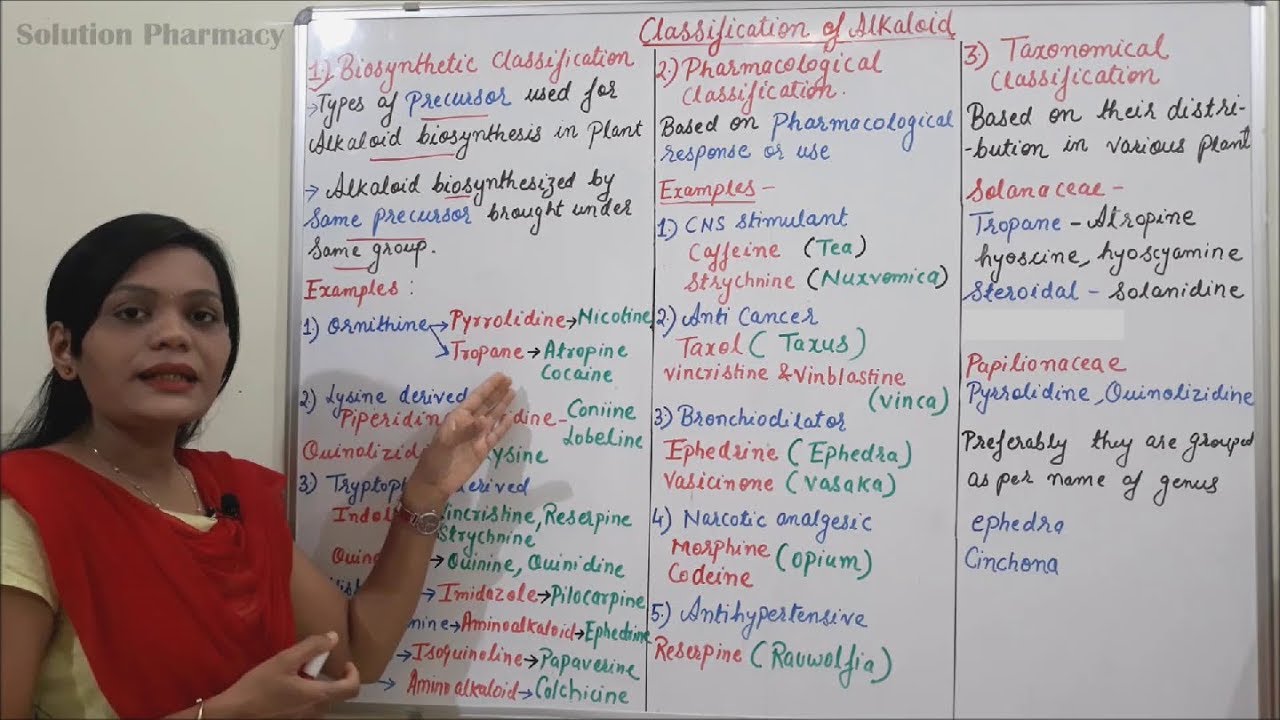 Solution Pharmacy
Classification of Alkaloid
1.) Biosynthetic Classification
→Types of Precursor used for
Alkaloid biosynthesis in Plant
→ Alkaloid biosynthesized by
Same precursor brought under
Same group.
Examples :
1.) Ornithine → Pyrrolidine → Nicotine
→ Tropane → Atropine
Cocaine
2) Lysine derived
Coniine
Lobeline
3) derived
Reserpine
Strychnine
→ Quinine, Quinidine
→ Imidazole → Pilocarpine
→ Aminoalkaloid → Ephedrine
→ Isoquinoline → Papaverine
→ Aminoalkaloid → Colchicine
2.) Pharmacological
Classification.
Based on Pharmacological
response or use
Examples -
1.) CNS Stimulant
Caffeine (Tea)
Strychnine (Nuxvomica)
2.) Anti Cancer
Taxol ( Taxus )
Vincristine & Vinblastine
(Vinca)
3) Bronchiodilator
Ephedrine (Ephedra)
Vasicinone (Vasaka)
4) Narcotic analgesic
Morphine (Opium)
Codeine
5.) Antihypertensive
Reserpine (Rauwolfia)
3) Taxonomical
Classification
Based on their distri-
-bution in various Plant
Solanaceae -
Tropane - Atropine
hyoscine, hyoscyamine
Steroidal - Solanidine
Papilionaceae
Pyrrolidine, Quinolizidine
Preferably they are grouped
as per name of genus
ephedra
Cinchona